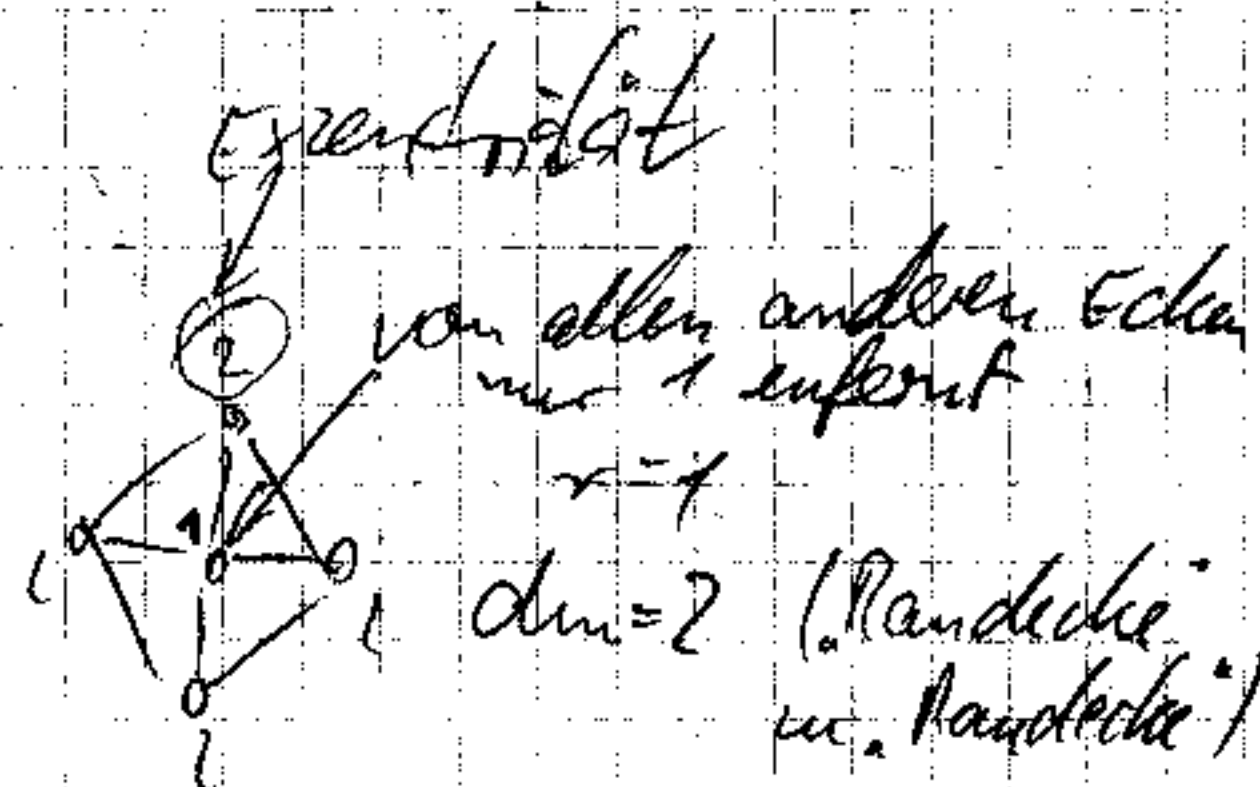 Exzentrizität
2
von allen anderen Ecken
nur 1 enfernt
r = 1
1
2
2
dm = 2 ("Randecke"
m. "Randecke")
2